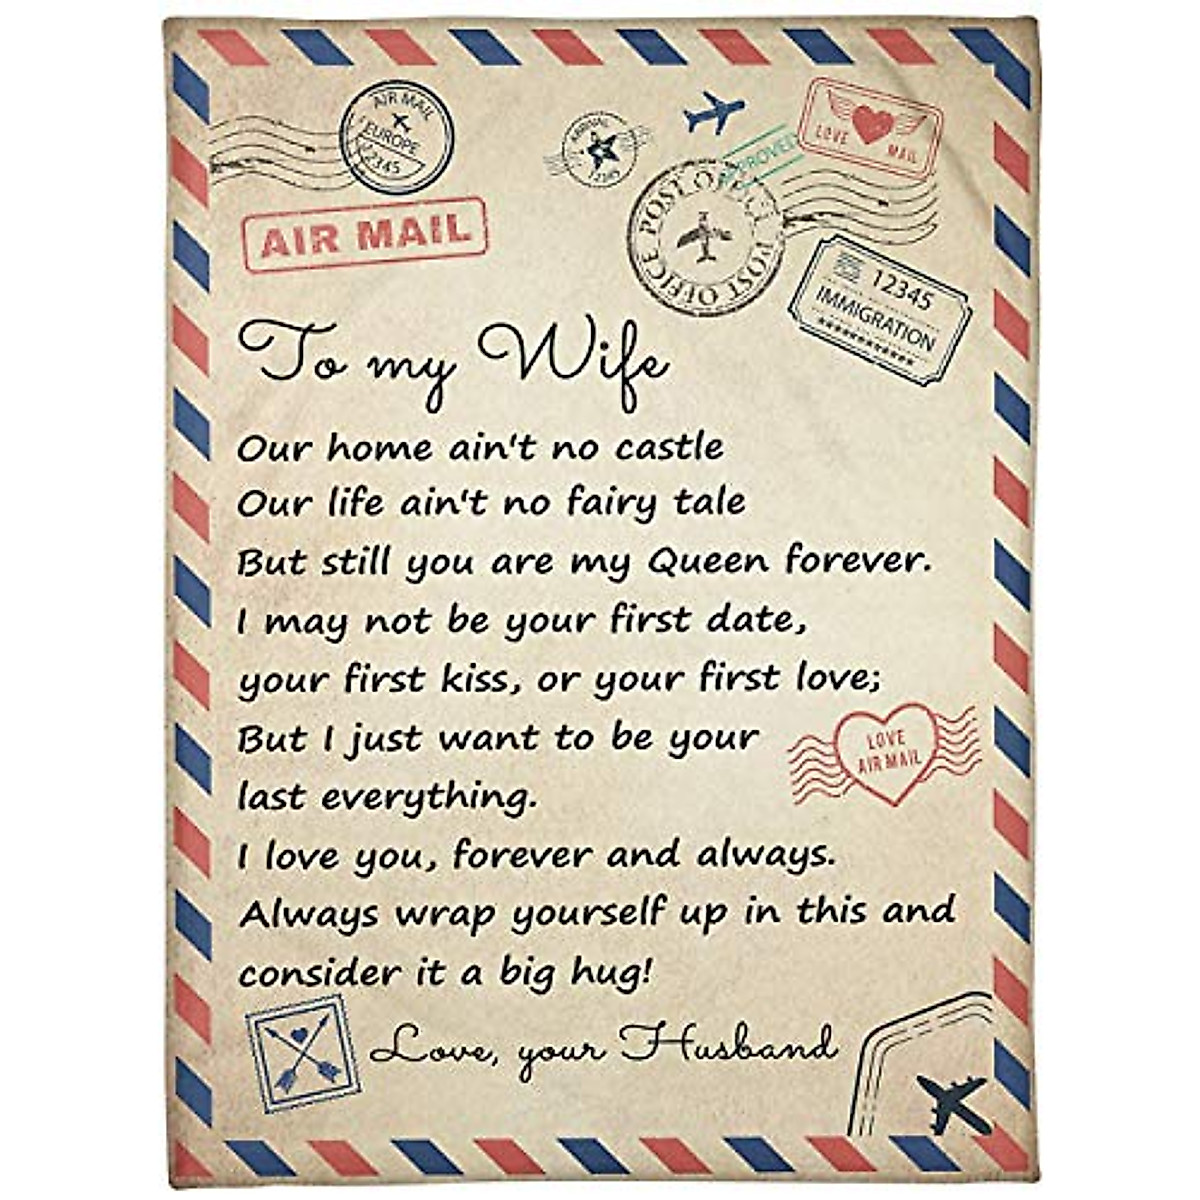 AIR MAIL
EUROPE
12345
ARRIVAL
12345
APPROVED
LOVE MAIL
AIR MAIL
POST OFFICE
POST OFFICE
12345
IMMIGRATION
To my Wife
Our home ain't no castle
Our life ain't no fairy tale
But still you are my Queen forever.
I may not be your first date,
your first kiss, or your first love;
But I just want to be your
last everything.
LOVE
AIR MAIL
I love you, forever and always.
Always wrap yourself up in this and
consider it a big hug!
Love, your Husband